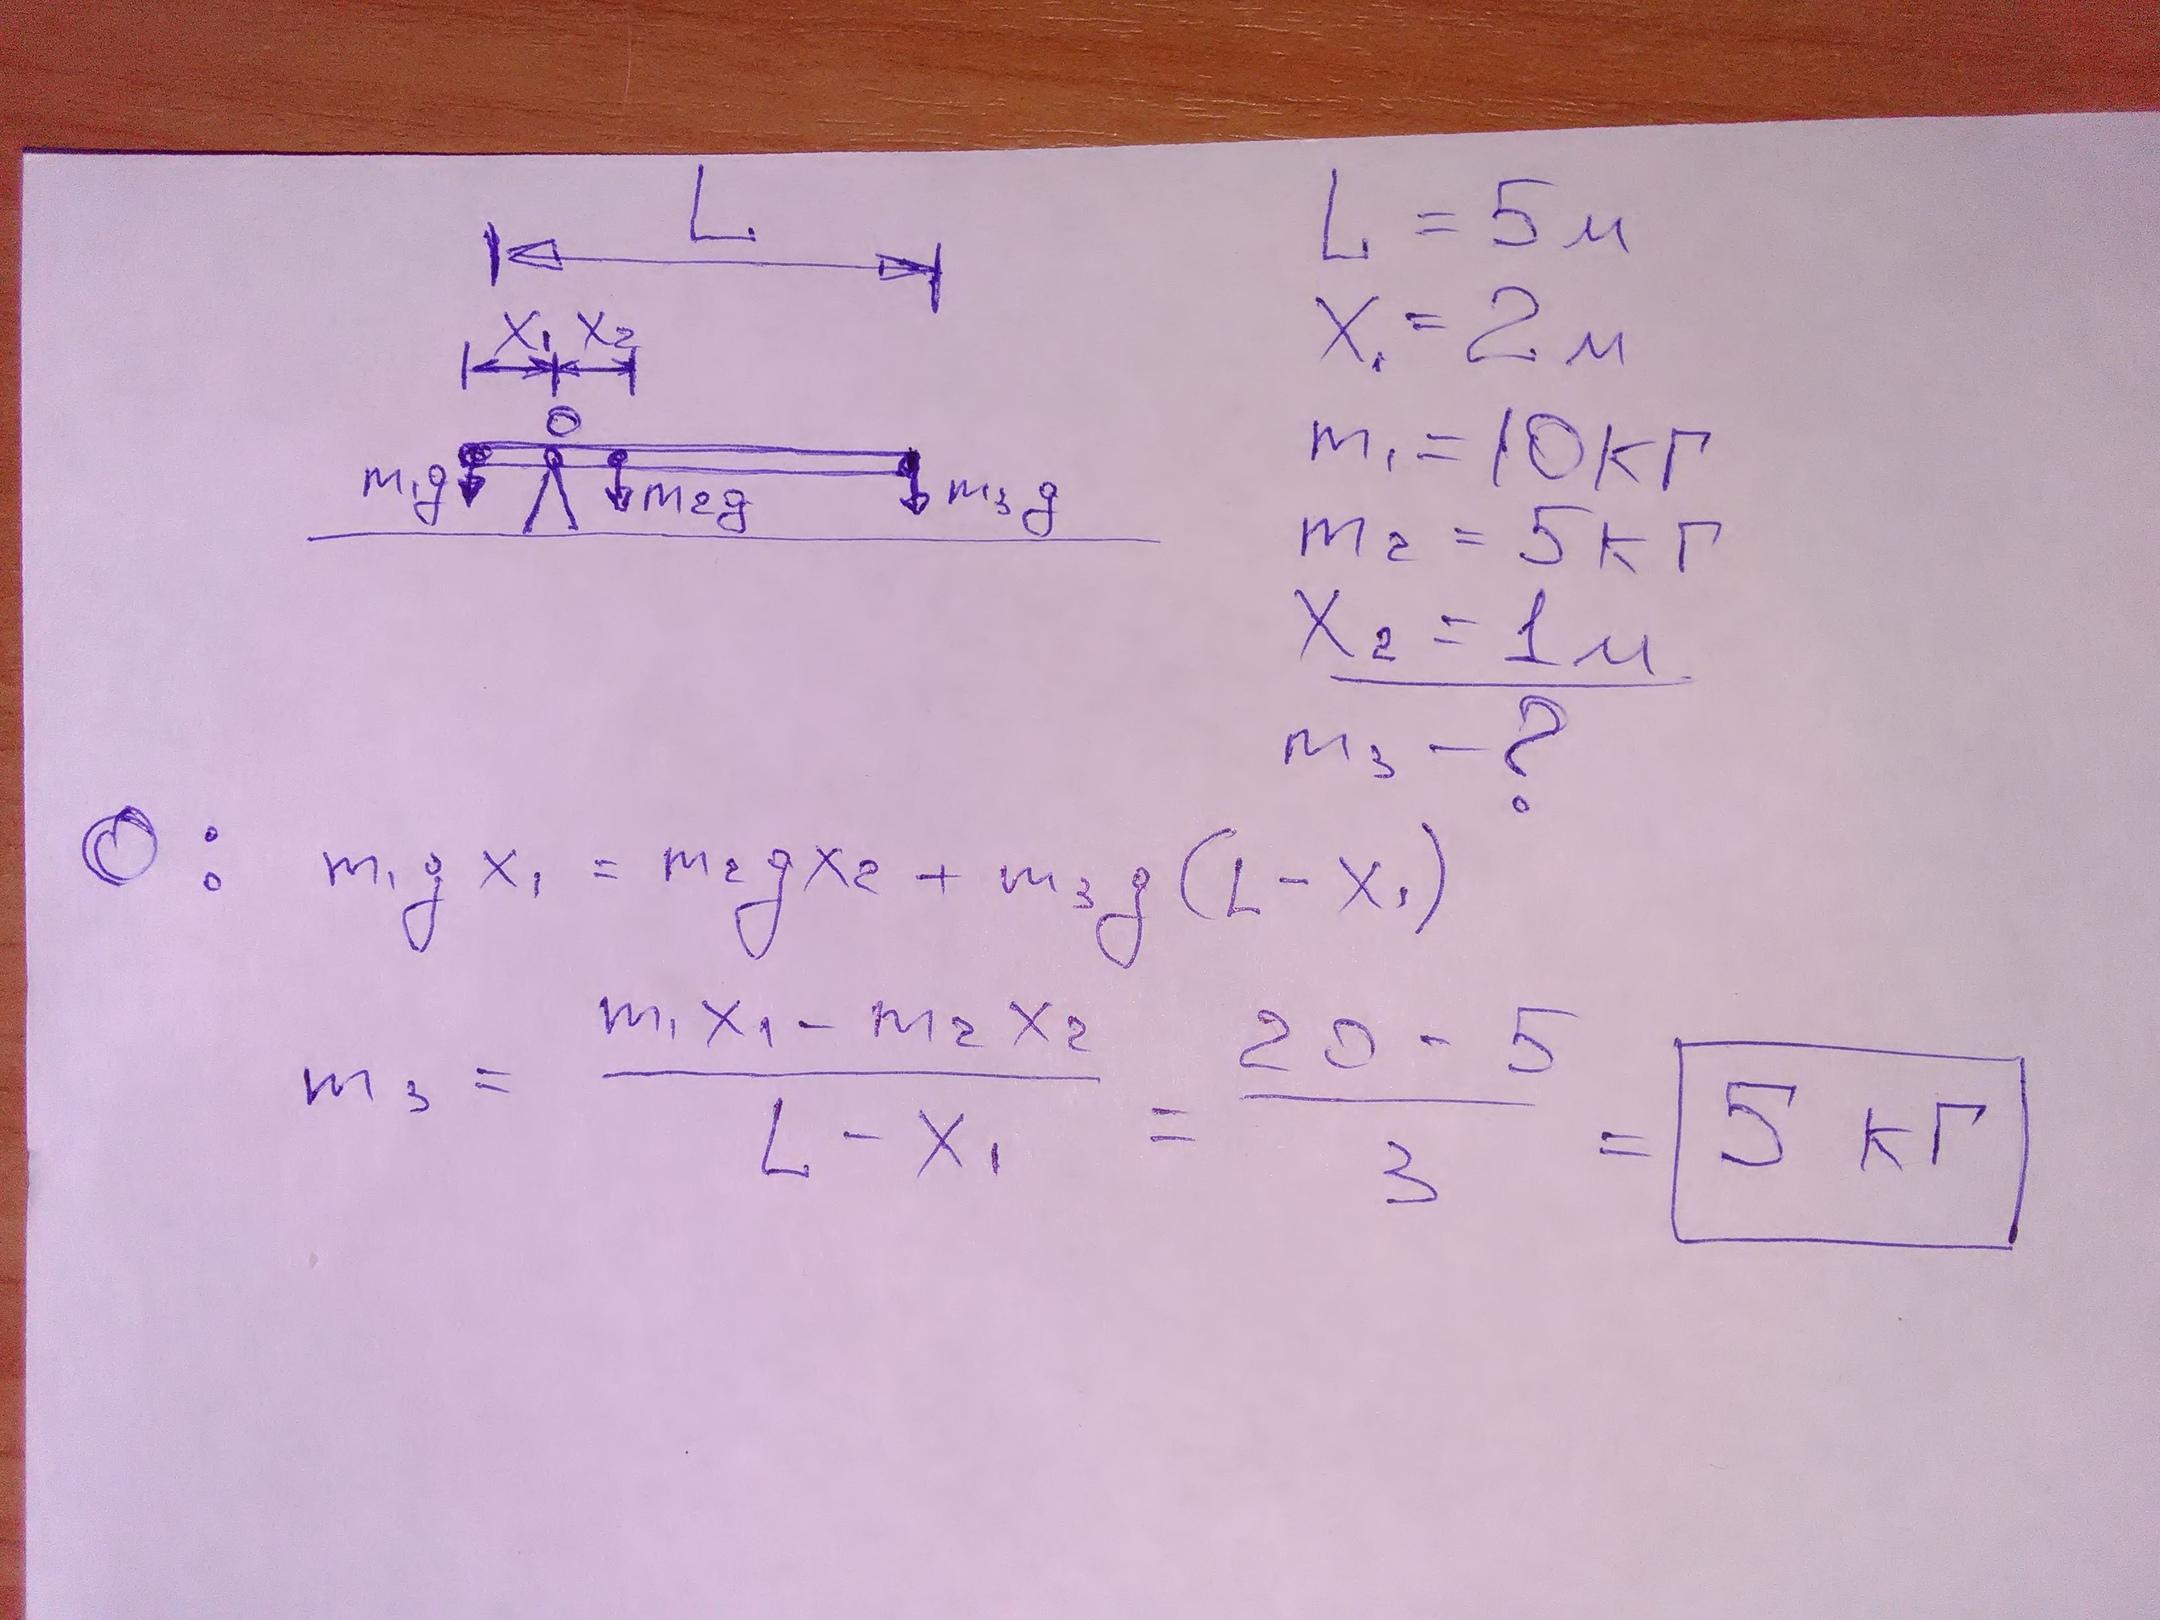 L
x₁ x₂
O
m₁g m₂g m₃g
L = 5 м
x₁ = 2 м
m₁ = 10 кг
m₂ = 5 кг
x₂ = 1 м
m₃ - ?
O : m₁g x₁ = m₂g x₂ + m₃g (L - x₁)
m₃ = (m₁x₁ - m₂x₂) / (L - x₁) = (20 - 5) / 3 = 5 кг